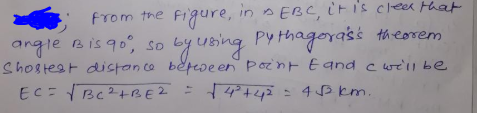 ; From the Figure, in △ EBC, it is cleer that
angle B is 90°, so by using Pythagoras's theorem
Shostest distance between point E and c will be
EC = √BC²+BE² = √4²+4² = 4√2 km.